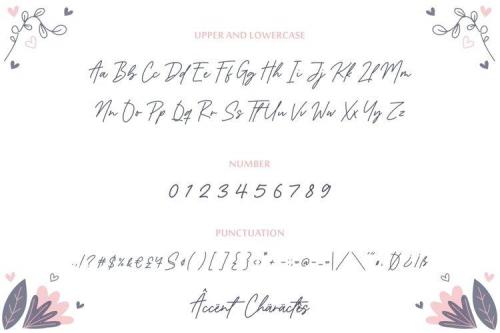 UPPER AND LOWERCASE
Aa Bb Cc Dd Ee Ff Gg Hh Ii Jj Kk Ll Mm
Nn Oo Pp Qq Rr Ss Tt Uu Vv Ww Xx Yy Zz
NUMBER
0 1 2 3 4 5 6 7 8 9
PUNCTUATION
.,!?#$%&€£¥
()[]{}<>"+-:;=@~_=|/\
Ø¿¡ß
Âccënt Chäráctës